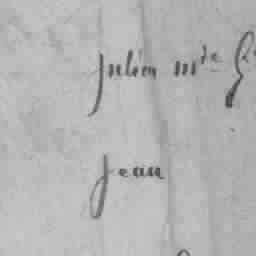 Julien m^de
Jean